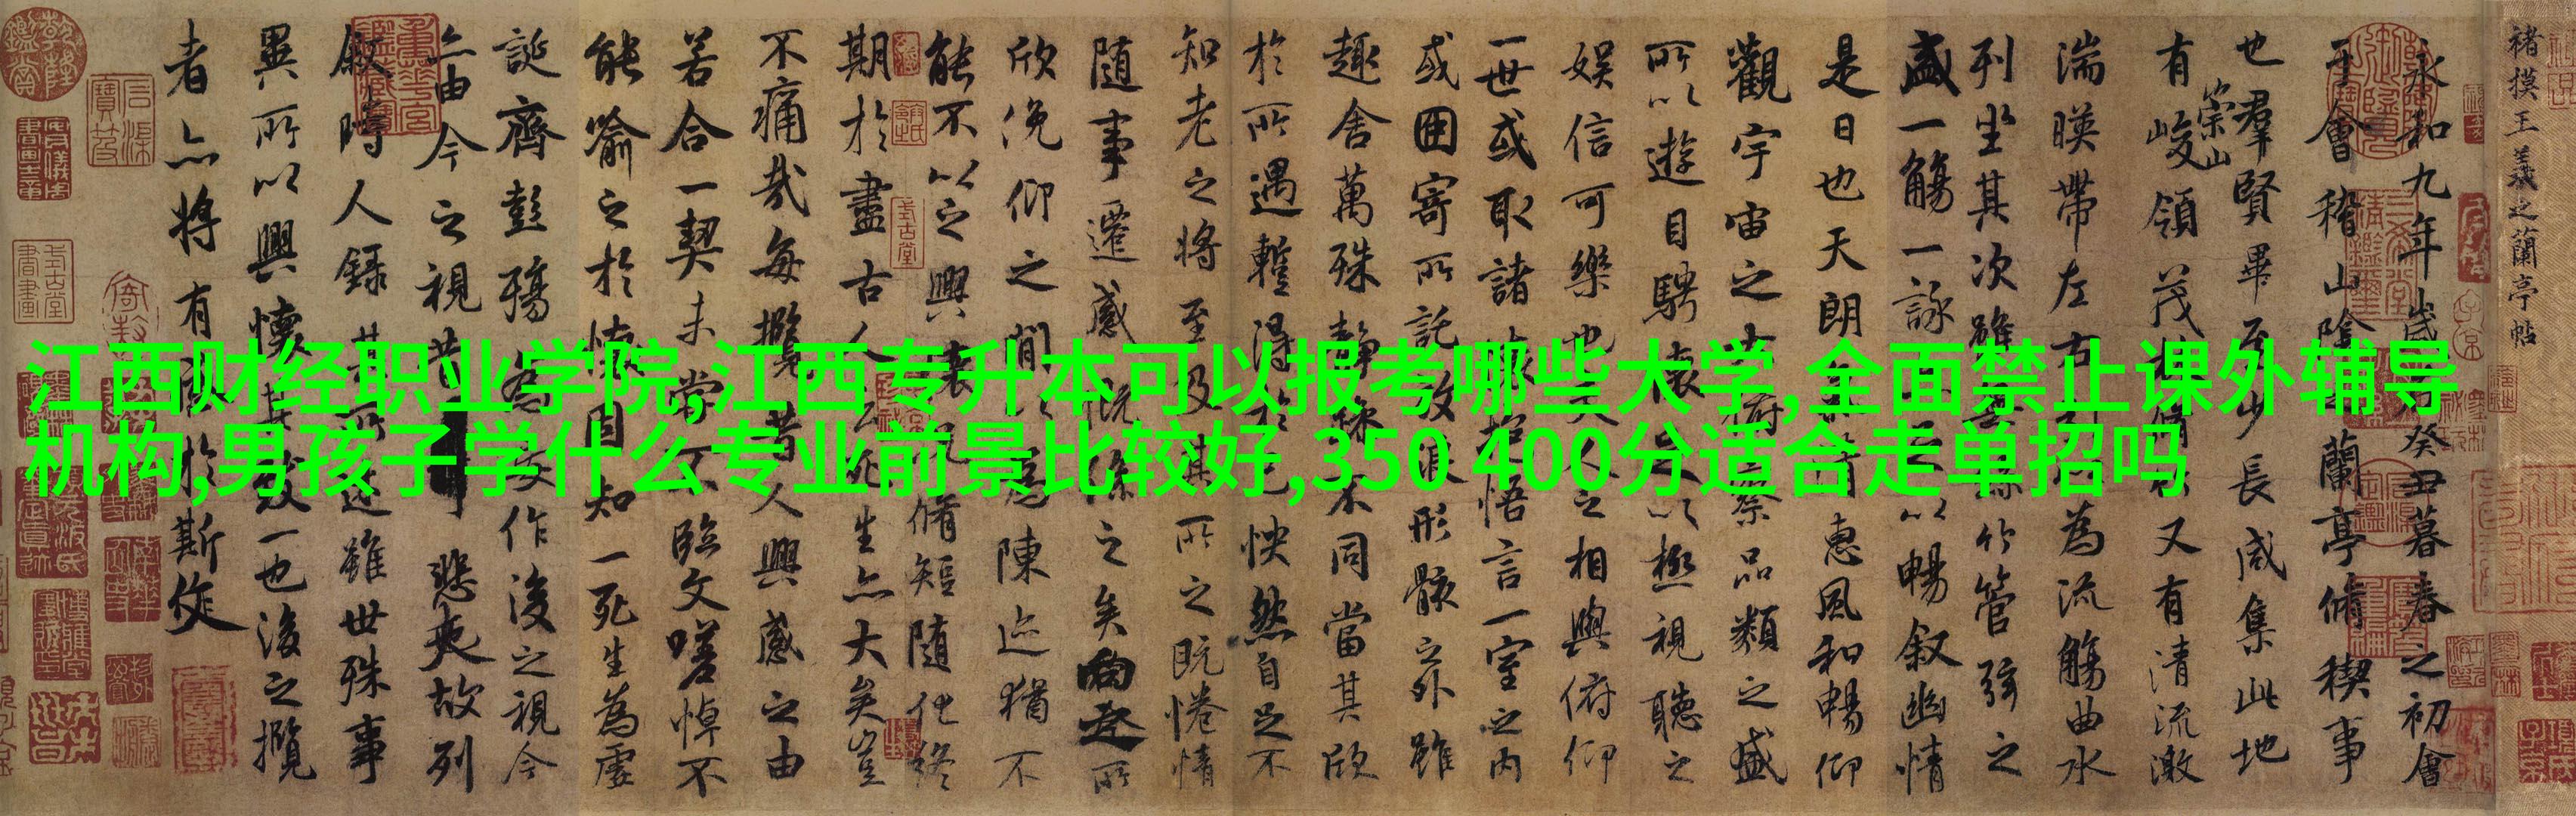 江西财经职业学院,江西专升本可以报考哪些大学,全面禁止课外辅导
机构,男孩子学什么专业前景比较好,350 400分适合走单招吗
褚摸王羲之蘭亭帖
永和九年歲在癸丑暮春之初會
于會稽山陰之蘭亭脩稧事
也羣賢畢至少長咸集此地
有崇山峻領茂林脩竹又有清流激
湍暎帶左右引以為流觴曲水
列坐其次雖無絲竹管弦之
盛一觴一詠亦足以暢叙幽情
是日也天朗氣清惠風和暢仰
觀宇宙之大俯察品類之盛
所以遊目騁懷足以極視聽之
娛信可樂也夫人之相與俯仰
一世或取諸懷抱悟言一室之內
或因寄所託放浪形骸之外雖
趣舍萬殊靜躁不同當其欣
於所遇蹔得於己怏然自足不
知老之將至及其所之既惓情
随事遷感慨係之矣向之所
欣俛仰之閒以為陳迹猶不
能不以之興懷況脩短随化終
期於盡古人云死生亦大矣豈
不痛哉每攬昔人興感之由
若合一契未嘗不臨文嗟悼不
能喻之於懷固知一死生為虛
誕齊彭殤為妄作後之視今
亦由今之視昔悲夫故列
叙時人錄其所述雖世殊事
異所以興懷其致一也後之攬
者亦將有感於斯文